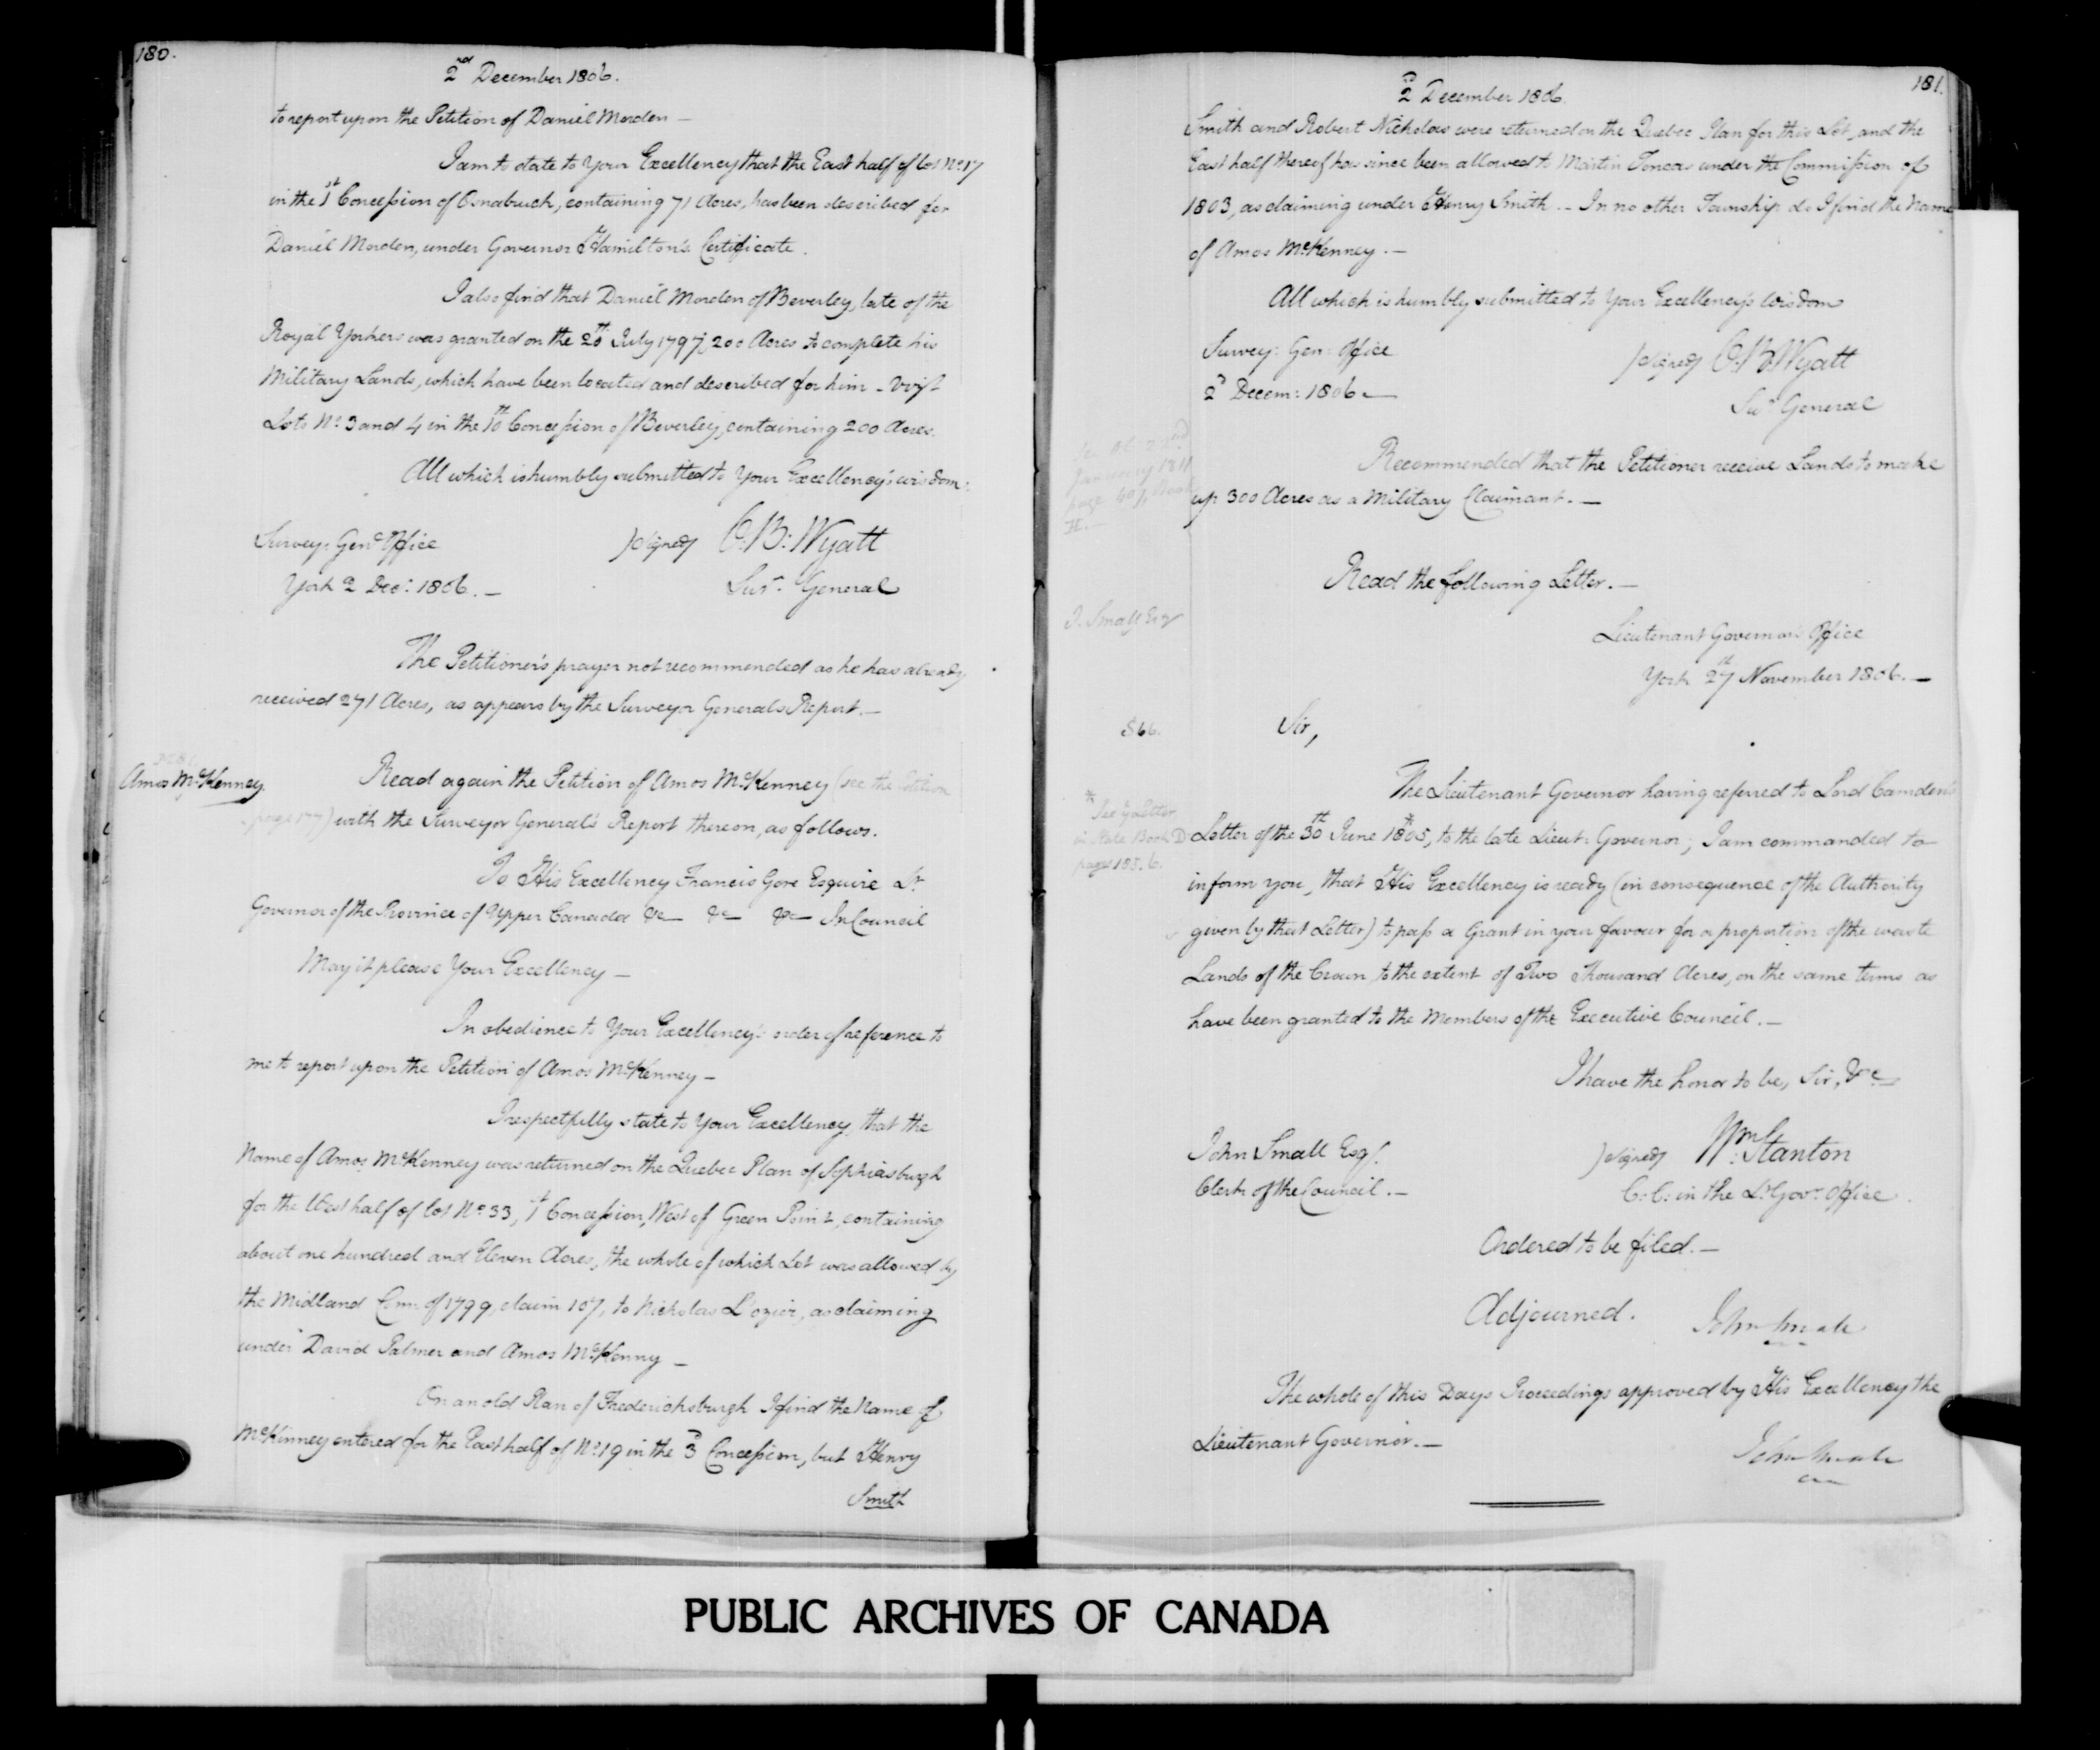 180.
2nd December 1806.
to report upon the Petition of Daniel Morden —
I am to state to Your Excellency that the East half of lot No. 17
in the 1st Concession of Osnabruck, containing 71 Acres, has been described for
Daniel Morden, under Governor Hamilton's Certificate.
I also find that Daniel Morden of Beverley, late of the
Royal Yorkers was granted on the 20th July 1797, 200 Acres to complete his
Military Lands, which have been located and described for him - vizt
Lots No. 3 and 4 in the 10th Concession of Beverley, containing 200 Acres.
All which is humbly submitted to Your Excellency's wisdom.
Survey: Genl. Office
York 2 Decr: 1806. —
)signed( C: B: Wyatt
Surr. General
The Petitioner's prayer not recommended as he has already
received 271 Acres, as appears by the Surveyor Generals Report. —
Amos McKenney
Read again the Petition of Amos McKenney (see the Petition
page 177) with the Surveyor General's Report thereon, as follows.
To His Excellency Francis Gore Esquire Lt.
Governor of the Province of Upper Canada &c — &c — &c — In Council
May it please Your Excellency —
In obedience to Your Excellency's order of reference to
me to report upon the Petition of Amos McKenney —
I respectfully state to Your Excellency, that the
Name of Amos McKenney was returned on the Quebec Plan of Sophiasburgh
for the West half of lot No. 33, 1st Concession, West of Green Point, containing
about one hundred and Eleven Acres, the whole of which Lot was allowed by
the Midland Comn. of 1799, claim 107, to Nicholas L'ozier, as claiming
under David Palmer and Amos McKenny —
On an old Plan of Fredericksburgh I find the Name of
McKinney entered for the East half of No. 19 in the 3d Concession, but Henry
Smith
181.
2d December 1806.
Smith and Robert Nicholas were returned on the Quebec Plan for this Lot, and the
East half thereof has since been allowed to Martin Toncas under the Commission of
1803, as claiming under Henry Smith. — In no other Township do I find the Name
of Amos McKenney. —
All which is humbly submitted to Your Excellency's wisdom
Survey: Gen: Office
2d Decem: 1806 —
)signed( C: B: Wyatt
Surr General
January 1811
page 407, Book
H. —
Recommended that the Petitioner receive Lands to make
up 300 Acres as a Military Claimant. —
Read the following Letter. —
J. Small Esqr
Lieutenant Governor's Office
York 27th November 1806. —
866.
Sir,
The Lieutenant Governor having referred to Lord Camden's
* See ye Letter
in State Book D
pages 185.6.
Letter of the 30th June 1805,* to the late Lieut: Governor; I am commanded to
inform you, that His Excellency is ready (in consequence of the Authority
given by that Letter) to pass a Grant in your favour for a proportion of the waste
Lands of the Crown, to the extent of Two Thousand Acres, on the same terms as
have been granted to the Members of the Executive Council. —
I have the honor to be, Sir, &c —
John Small Esqr.
Clerk of the Council. —
)signed( Wm: Stanton
C: C: in the Lt. Govr. Office.
Ordered to be filed. —
Adjourned. John Small
The whole of this Days Proceedings approved by His Excellency the
Lieutenant Governor. —
John Small
PUBLIC ARCHIVES OF CANADA